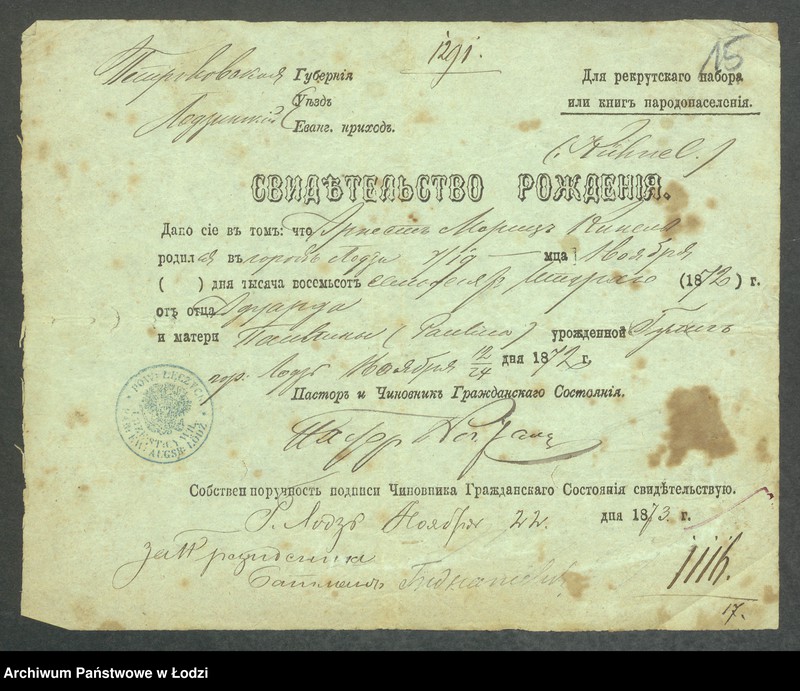 1291.
15
Петроковская Губернія
Уѣздъ
Лодзинскій Еванг. приходъ.
Для рекрутскаго набора
или книгъ народонаселенія.
(Kühnel.)
СВИДѢТЕЛЬСТВО РОЖДЕНІЯ.
Дано сіе въ томъ: что Эрнестъ Морицъ Кинель
родился въ городѣ Лодзи мца Ноября
( ) дня тысяча восемьсотъ семьдесятъ втораго (1872) г.
отъ отца Эдуарда
и матери Паулины (Paulina) урожденной
гор. Лодзь Ноября 12/24 дня 1872 г.
Пасторъ и Чиновникъ Гражданскаго Состоянія.
Пасторъ
Собственноручность подписи Чиновника Гражданскаго Состоянія свидѣтельствую.
Г. Лодзь Ноября 22 дня 1873 г.
За Президента
1116.
17.
Archiwum Państwowe w Łodzi